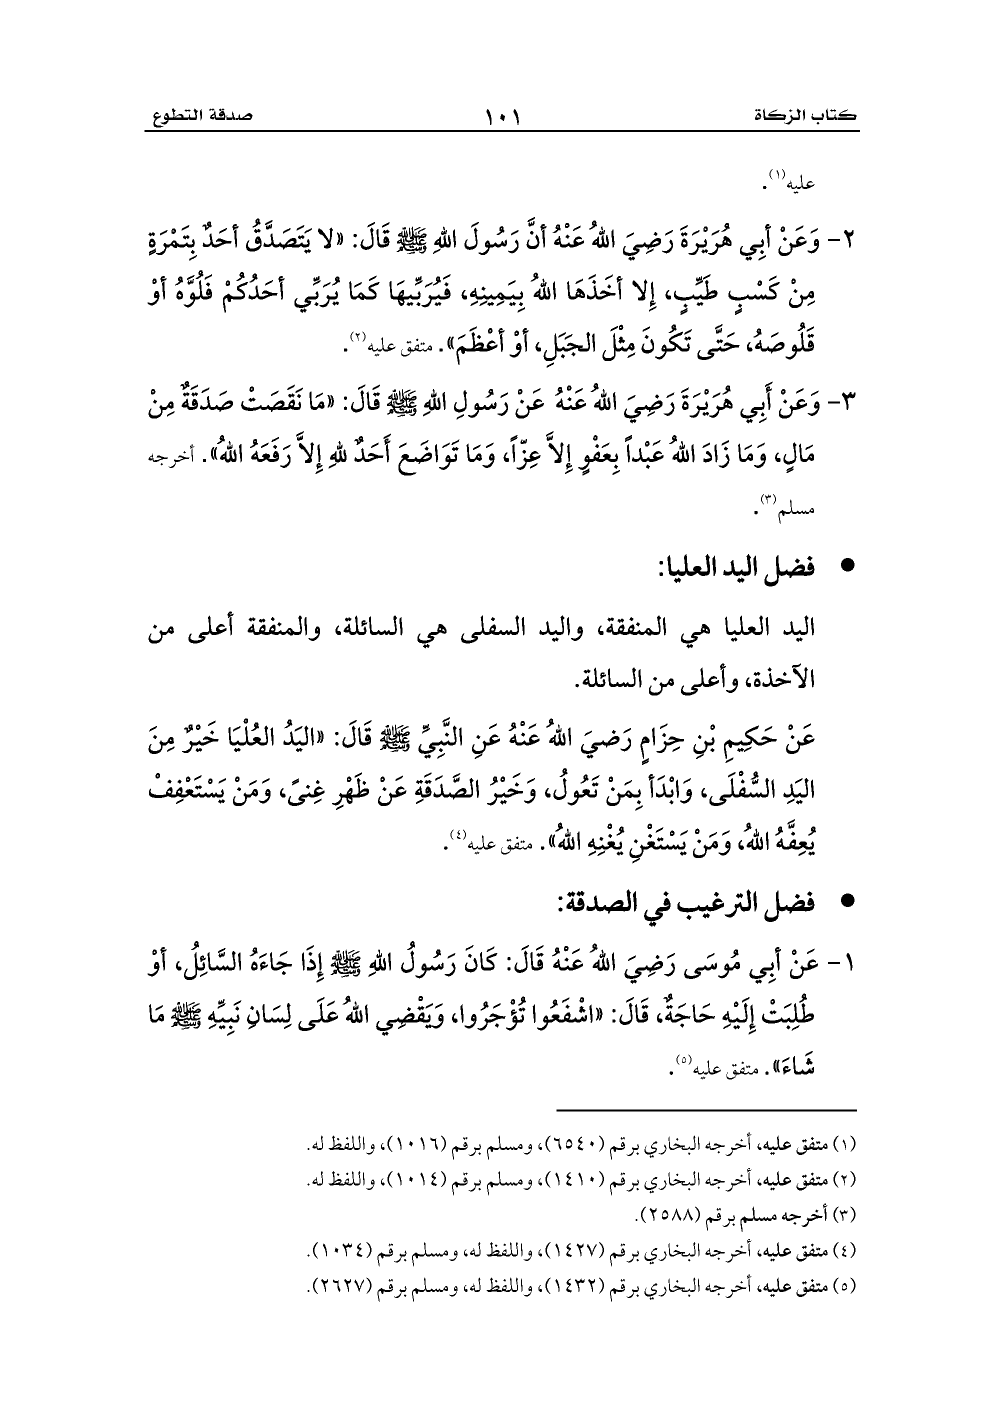 كتاب الزكاة ١٠١ صدقة التطوع
عليه(١).
٢- وَعَنْ أبِي هُرَيْرَةَ رَضِيَ اللهُ عَنْهُ أنَّ رَسُولَ اللهِ ﷺ قَالَ: «لا يَتَصَدَّقُ أحَدٌ بِتَمْرَةٍ
مِنْ كَسْبٍ طَيِّبٍ، إِلا أخَذَهَا اللهُ بِيَمِينِهِ، فَيُرَبِّيهَا كَمَا يُرَبِّي أحَدُكُمْ فَلُوَّهُ أوْ
قَلُوصَهُ، حَتَّى تَكُونَ مِثْلَ الجَبَلِ، أوْ أعْظَمَ». متفق عليه(٢).
٣- وَعَنْ أَبِي هُرَيْرَةَ رَضِيَ اللهُ عَنْهُ عَنْ رَسُولِ اللهِ ﷺ قَالَ: «مَا نَقَصَتْ صَدَقَةٌ مِنْ
مَالٍ، وَمَا زَادَ اللهُ عَبْداً بِعَفْوٍ إِلاَّ عِزّاً، وَمَا تَوَاضَعَ أَحَدٌ للهِ إِلاَّ رَفَعَهُ اللهُ». أخرجه
مسلم(٣).
• فضل اليد العليا:
اليد العليا هي المنفقة، واليد السفلى هي السائلة، والمنفقة أعلى من
الآخذة، وأعلى من السائلة.
عَنْ حَكِيمِ بْنِ حِزَامٍ رَضيَ اللهُ عَنْهُ عَنِ النَّبِيِّ ﷺ قَالَ: «اليَدُ العُلْيَا خَيْرٌ مِنَ
اليَدِ السُّفْلَى، وَابْدَأ بِمَنْ تَعُولُ، وَخَيْرُ الصَّدَقَةِ عَنْ ظَهْرِ غِنىً، وَمَنْ يَسْتَعْفِفْ
يُعِفَّهُ اللهُ، وَمَنْ يَسْتَغْنِ يُغْنِهِ اللهُ». متفق عليه(٤).
• فضل الترغيب في الصدقة:
١- عَنْ أبِي مُوسَى رَضِيَ اللهُ عَنْهُ قَالَ: كَانَ رَسُولُ اللهِ ﷺ إِذَا جَاءَهُ السَّائِلُ، أوْ
طُلِبَتْ إِلَيْهِ حَاجَةٌ، قَالَ: «اشْفَعُوا تُؤْجَرُوا، وَيَقْضِي اللهُ عَلَى لِسَانِ نَبِيِّهِ ﷺ مَا
شَاءَ». متفق عليه(٥).
(١) متفق عليه، أخرجه البخاري برقم (٦٥٤٠)، ومسلم برقم (١٠١٦)، واللفظ له.
(٢) متفق عليه، أخرجه البخاري برقم (١٤١٠)، ومسلم برقم (١٠١٤)، واللفظ له.
(٣) أخرجه مسلم برقم (٢٥٨٨).
(٤) متفق عليه، أخرجه البخاري برقم (١٤٢٧)، واللفظ له، ومسلم برقم (١٠٣٤).
(٥) متفق عليه، أخرجه البخاري برقم (١٤٣٢)، واللفظ له، ومسلم برقم (٢٦٢٧).